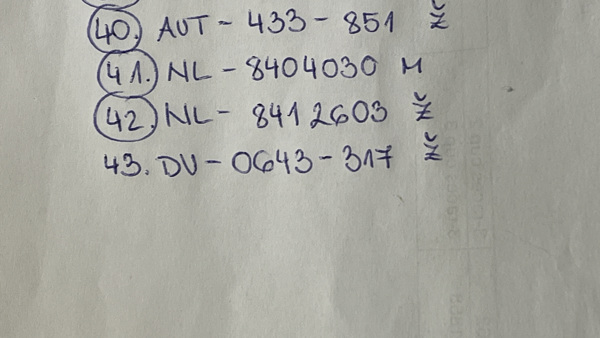 40. AUT - 433 - 851 Ž
41. NL - 8404030 M
42. NL - 8412603 Ž
43. DV - 0643 - 317 Ž